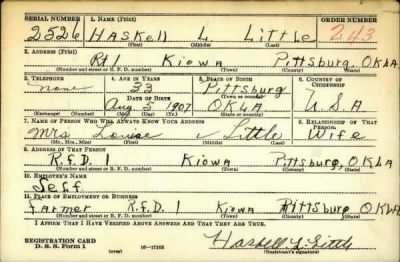 SERIAL NUMBER 1. NAME (Print) ORDER NUMBER
2526 HASKELL L. Little 243
(First) (Middle) (Last)
2. ADDRESS (Print)
Rt 1 Kiowa Pittsburg, OKLA
(Number and street or R. F. D. number) (Town) (County) (State)
3. TELEPHONE 4. AGE IN YEARS 5. PLACE OF BIRTH 6. COUNTRY OF CITIZENSHIP
none 33 Pittsburg
DATE OF BIRTH (Town or county)
Aug. 5 1907 OKLA U.S.A
(Exchange) (Number) (Mo.) (Day) (Yr.) (State or country)
7. NAME OF PERSON WHO WILL ALWAYS KNOW YOUR ADDRESS 8. RELATIONSHIP OF THAT PERSON
Mrs Louise Little Wife
(Mr., Mrs., Miss) (First) (Middle) (Last)
9. ADDRESS OF THAT PERSON
R.F.D. 1 Kiowa Pittsburg, OKLA
(Number and street or R. F. D. number) (Town) (County) (State)
10. EMPLOYER'S NAME
Self
11. PLACE OF EMPLOYMENT OR BUSINESS
Farmer R.F.D. 1 Kiowa Pittsburg OKLA
(Number and street or R. F. D. number) (Town) (County) (State)
I AFFIRM THAT I HAVE VERIFIED ABOVE ANSWERS AND THAT THEY ARE TRUE.
REGISTRATION CARD
D. S. S. Form 1 (over) 16-17105
Haskell L. Little
(Registrant's signature)